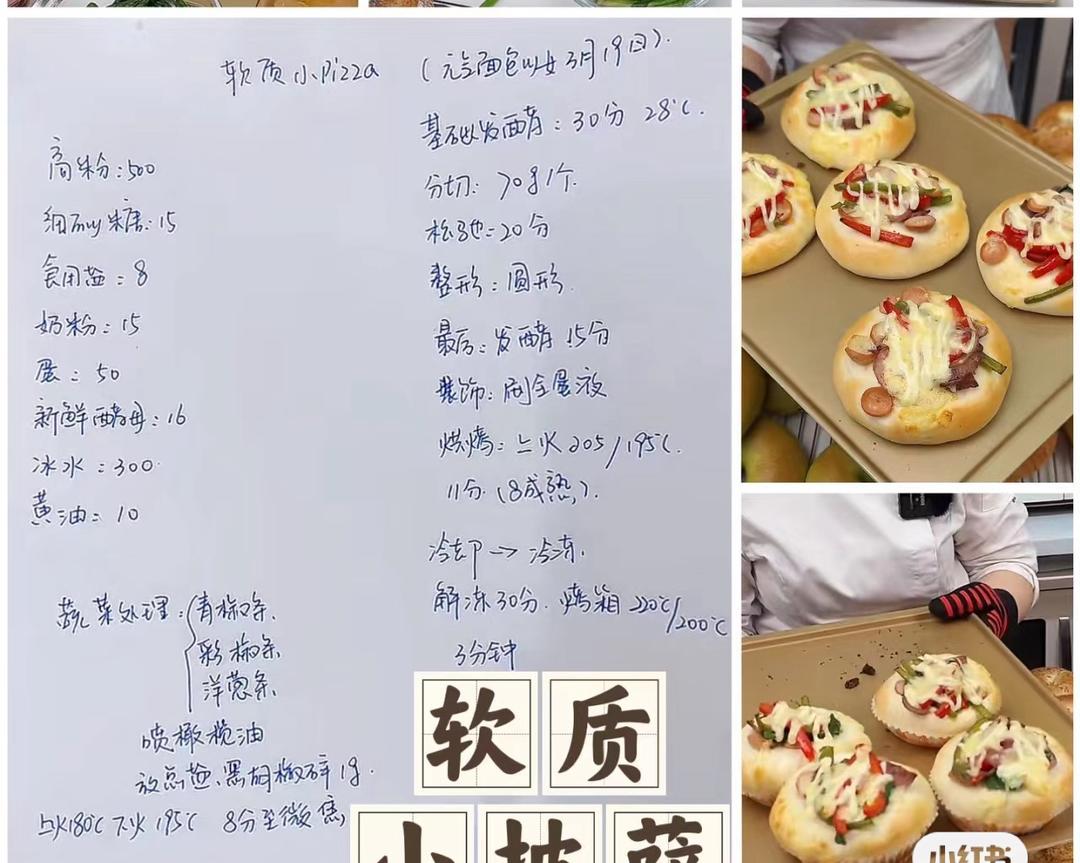 软质小Pizza
高粉:500
细砂糖:15
食用盐:8
奶粉:15
蛋:50
新鲜酵母:16
冰水:300
黄油:10
蔬菜处理:
青椒条.
彩椒条
洋葱条
喷橄榄油
放点盐、黑胡椒碎1g.
上火180℃ 下火195℃ 8分至微焦
3月19日).
基础发酵:30分 28℃.
分切:70g1个.
松弛:20分
整形:圆形.
最后:发酵15分
装饰:刷全蛋液
烘烤:上火205/195℃.
11分.(8成熟).
冷却→冷冻.
解冻30分.烤箱220℃/200℃
3分钟
软质
小披萨
小红书